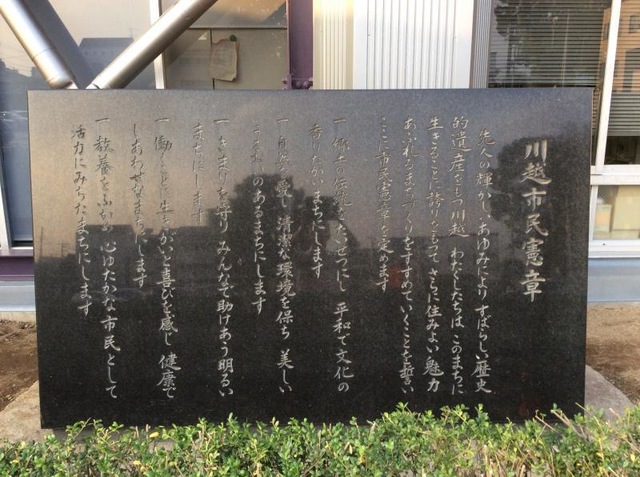 川越市民憲章
先人の輝かしいあゆみにより すばらしい歴史
的遺産をもつ川越 わたしたちは このまちに
生きることに誇りをもって さらに住みよい 魅力
あふれるまちづくりをすすめていくことを誓い
ここに市民憲章を定めます
一 郷土の伝統をたいせつにし 平和で文化の
香りたかいまちにします
一 自然を愛し 清潔な環境を保ち 美しい
うるおいのあるまちにします
一 きまりを守り みんなで助けあう明るい
まちにします
一 働くことに生きがいと喜びを感じ 健康で
しあわせなまちにします
一 教養をふかめ 心ゆたかな市民として
活力にみちたまちにします